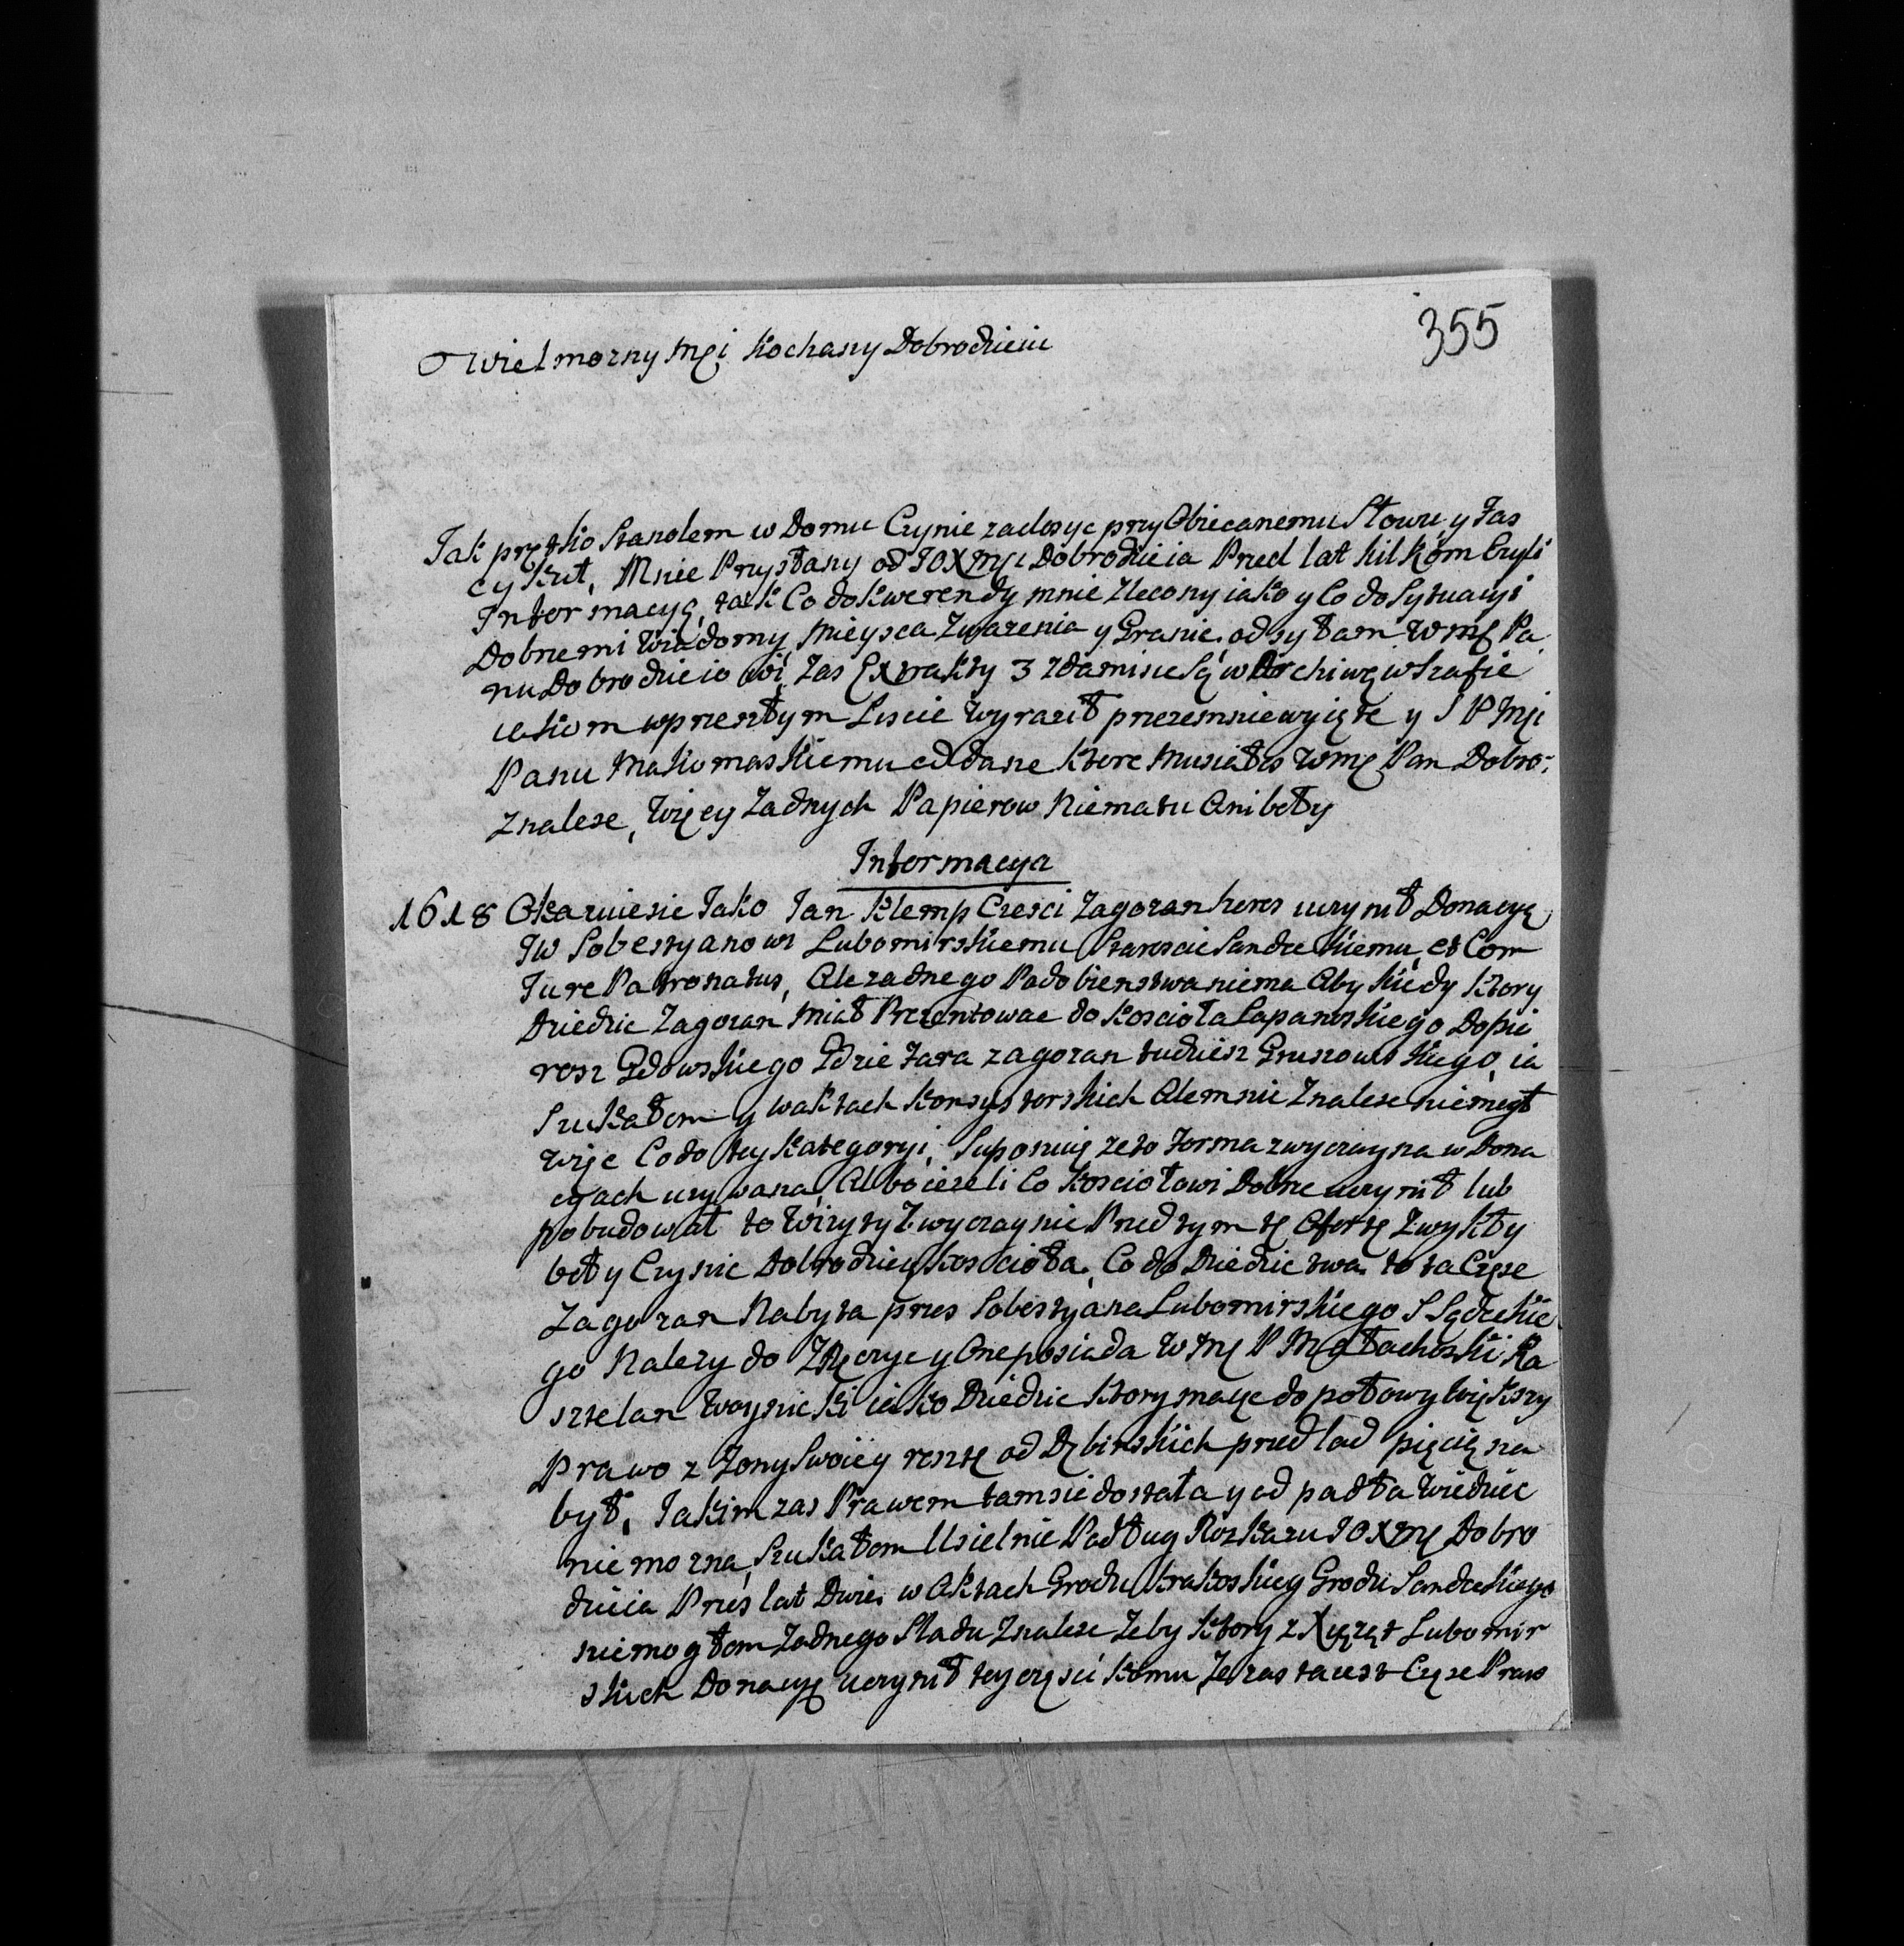 355
Wielmozny Mći Kochany Dobrodzieiu
Jak prętko Stanołem w Domu Czynie zadosyc przyObiecanemu Słowu y Fas
cykuł, Mnie Przysłany od JOXMći Dobrodzieia Przed lat kilkom Czyli
Informacyą, tak Co do Kwerendy mnie Zlecony iako y Co do Sytuacyi
Dobrzemi Wiadomy Mieysca Zwazenia y Granic, odsyłam WMę Pa
nu Dobrodzieiowi, Zas Extrakty 3 zdamisie Są w Archiwę w Szafie
iakiom w przeszłym Liscie Wyraził przezemnie wyięte y J P Mći
Panu Makomaskiemu oddane Ktore Musiałes WMę Pan Dobro:
Znalesc, Więcy Zadnych Papierow Niema tu Ani beły
Informacya
1618 Okazuiesie Jako Jan Klemp Czesci Zagorzan heres uczynił Donacyę
JW Sobestyanowi Lubomirskiemu Staroscie Sandeckiemu, et Com
Jure Patronatus, Ale zadnego Podobienstwa niema Aby Kiedy Ktory
Dziedzic Zagorzan Miał Prezentowac do Koscioła Łapanoskiego Dopie
rosz Gdowskiego Gdzie Fara zagorzan tudziesz Gruszowskiego, ia
Szukałem y w aktach Konsystorskich Alem nic Znalesc niemogł
więc Co do tey Kategoryi, Suponuię ze to Forma zwyczayna w Dona
cyach uzywana, Albo iezeli Co Kosciołowi Dobrze uczynił lub
pobudował to Wizyty Zwyczaynie Przed tym tę Ofertę Zwykły
beły Czynic Dobrodzieiy Koscioła, Co do Dziedzictwa to ta Częsc
Zagorzan Nabyta przes Sobestyana Lubomirskiego S Sędeckie
go Nalezy do Zręczyc y One posiada WMę P Małachoski Ka
sztelan Woynicki iako Dziedzic Ktory maiąc do połowy Większy
Prawo z Zony Swoiey resztę od Dębinskich przed lad pięcią na
był, Jakim zas Prawem tam sie dostała y od padła Wiedziec
nie mozna, Szukałem Usielnie Podług Rozkazu JOXMę Dobro
dzieia Przes lat Dwie, w Aktach Grodu Krakoskiey Grodu Sandeckiego
niemogłem Zadnego Sladu Znalesc Zeby Ktory z Xiąząt Lubomir
skich Donacyę uczynił tey częsci komu, Ze zas ta iest Częsc Praw